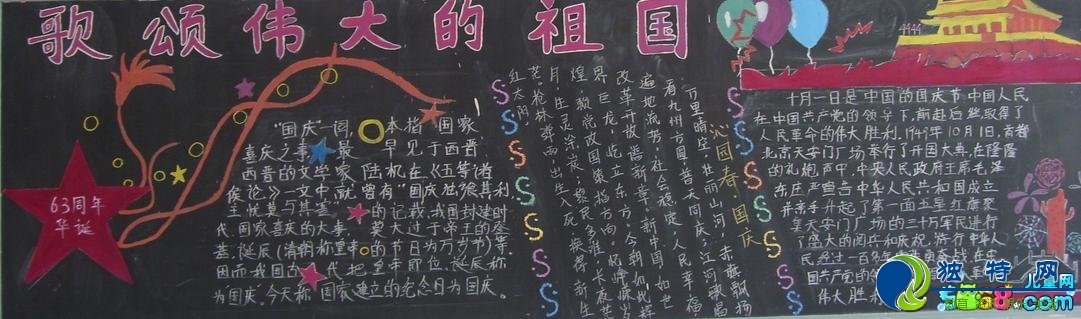 歌颂伟大的祖国
63周年
华诞
"国庆"一词，本指国家
喜庆之事，最早见于西晋。
西晋的文学家陆机在《五等诸
侯论》一文中就曾有"国庆独飨其利，
主忧莫与其害"的记载，我国封建时
代，国家喜庆的大事，莫大过于帝王的登
基，诞辰（清朝称皇帝的节日为万岁节）等。
因而我国古代把皇帝即位、诞辰称
为"国庆"。今天称国家建立的纪念日为国庆。
沁园春·国庆
万里晴空，壮丽山河，赤旗飘扬
看九州方圆，普天同庆，江河
遍地流芳，社会稳定，人民幸福
改革开放谱新章，新中国，如世
界巨龙，屹立东方。今朝如此辉
煌，党政国策指方向。忆峥嵘岁
月，生灵涂炭，黎民多难，长夜茫
茫，枪林弹雨，出生入死，换得新生
红太阳。
十月一日是中国的国庆节，中国人民
在中国共产党的领导下，前赴后继取得了
人民革命的伟大胜利。1949年10月1日，首都
北京天安门广场举行了开国大典，在隆隆
的礼炮声中，中央人民政府主席毛泽
东庄严宣告中华人民共和国成立
并亲手升起了第一面五星红旗。聚
集天安门广场的三十万军民进行
了盛大的阅兵和庆祝游行。中华人
民经过一百多年
国共产党的
伟大胜利
独特网
儿童网